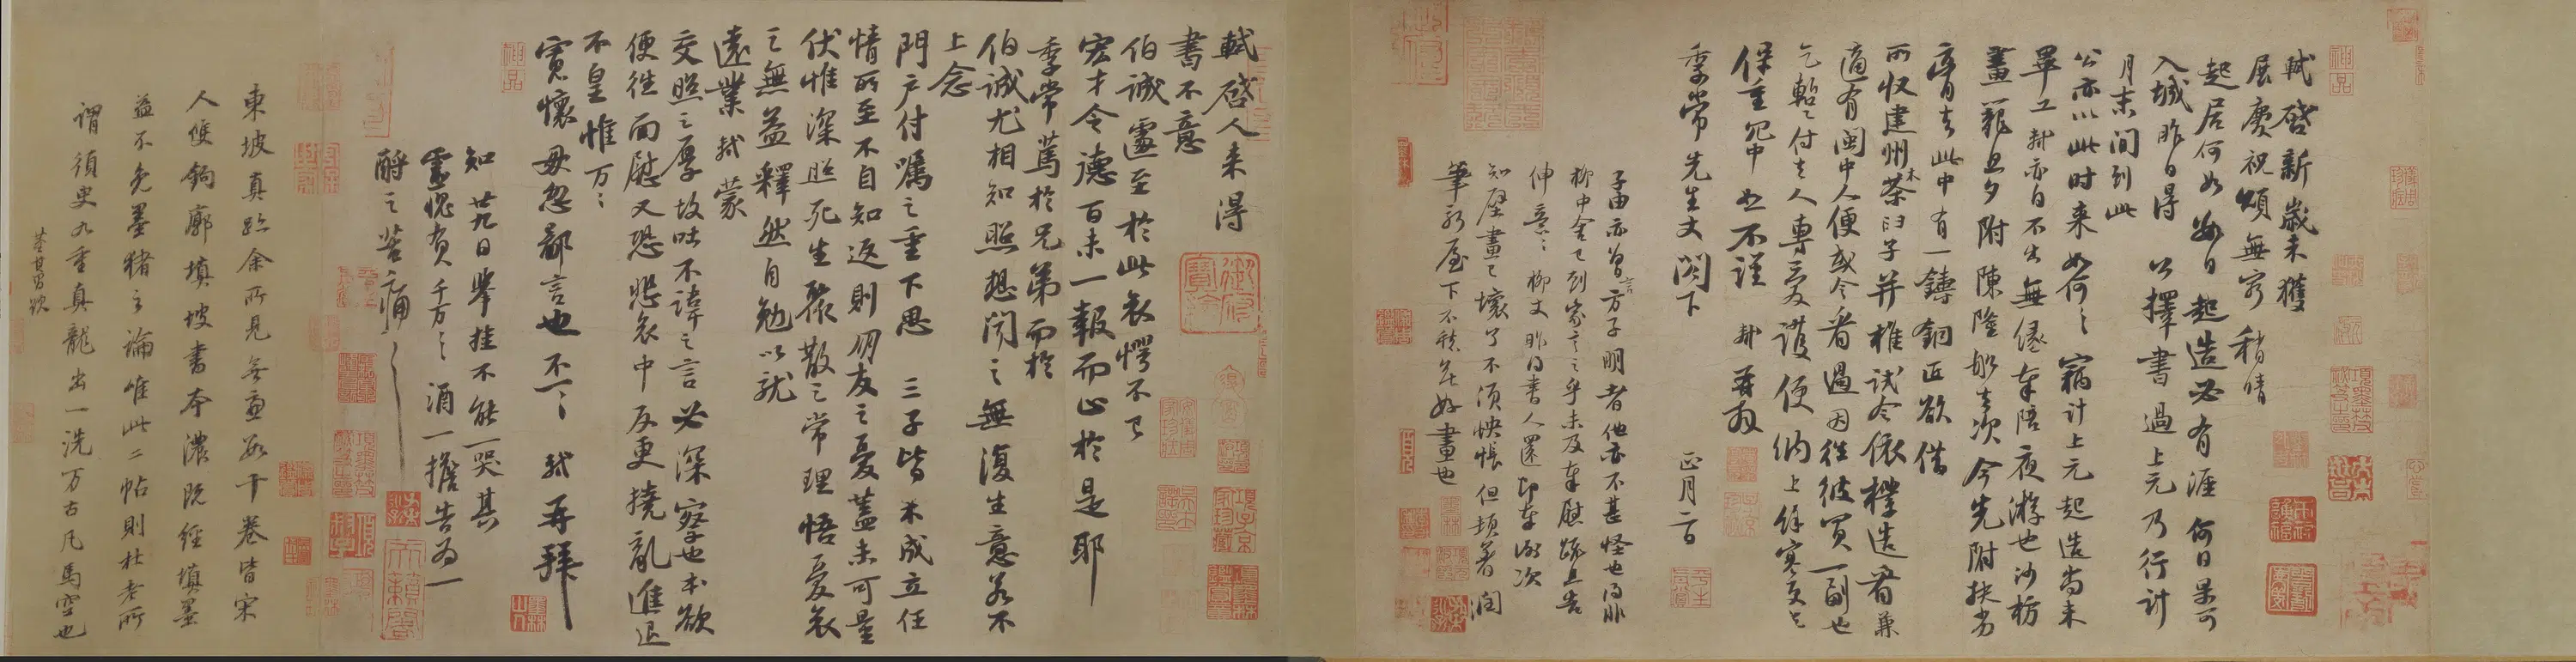 軾啓新歲未獲
展慶祝頌無窮稍晴
起居何如數日起造必有涯何日果可
入城昨日得公擇書過上元乃行計
月末間到此
公亦以此時來如何〻竊計上元起造尚未
畢工軾亦自不出無緣奉陪夜游也沙枋
畫籠旦夕附陳隆船去次今先附扶劣
膏去此中有一鑄銅匠欲借
所收建州木茶臼子并椎試令依樣造看兼
適有閩中人便或令看過因往彼買一副也
乞暫付去人專愛護便納上餘寒更乞
保重冗中恕不謹 軾再拜
季常先生丈閣下 正月二日
子由亦曾言方子明者他亦不甚怪也得非
柳中舍已到家言之乎未及奉慰疏且告
伸意〻柳丈昨得書人還即奉謝次
知壁畫已壞了不須怏悵但頓著潤
筆新屋下不愁無好畫也
軾啓人來得
書不意
伯誠遽至於此哀愕不已
宏才令德百未一報而止於是耶
季常篤於兄弟而於
伯誠尤相知照想聞之無復生意若不
上念
門户付囑之重下思 三子皆未成立任
情所至不自知返則朋友之憂蓋未可量
伏惟深照死生聚散之常理悟憂哀
之無益釋然自勉以就
遠業軾蒙
交照之厚故吐不諱之言必深察也本欲
便往面慰又恐悲哀中反更撓亂進退
不皇惟万〻
寬懷毋忽鄙言也不一〻 軾再拜
知廿九日舉挂不能一哭其
靈愧負千万〻酒一擔告為一
酹之苦痛〻
東坡真跡余所見無慮數十卷皆宋
人雙鉤廓填坡書本濃既經填墨
益不免墨猪之論唯此二帖則杜老所
謂須臾九重真龍出一洗万古凡馬空也
董其昌題